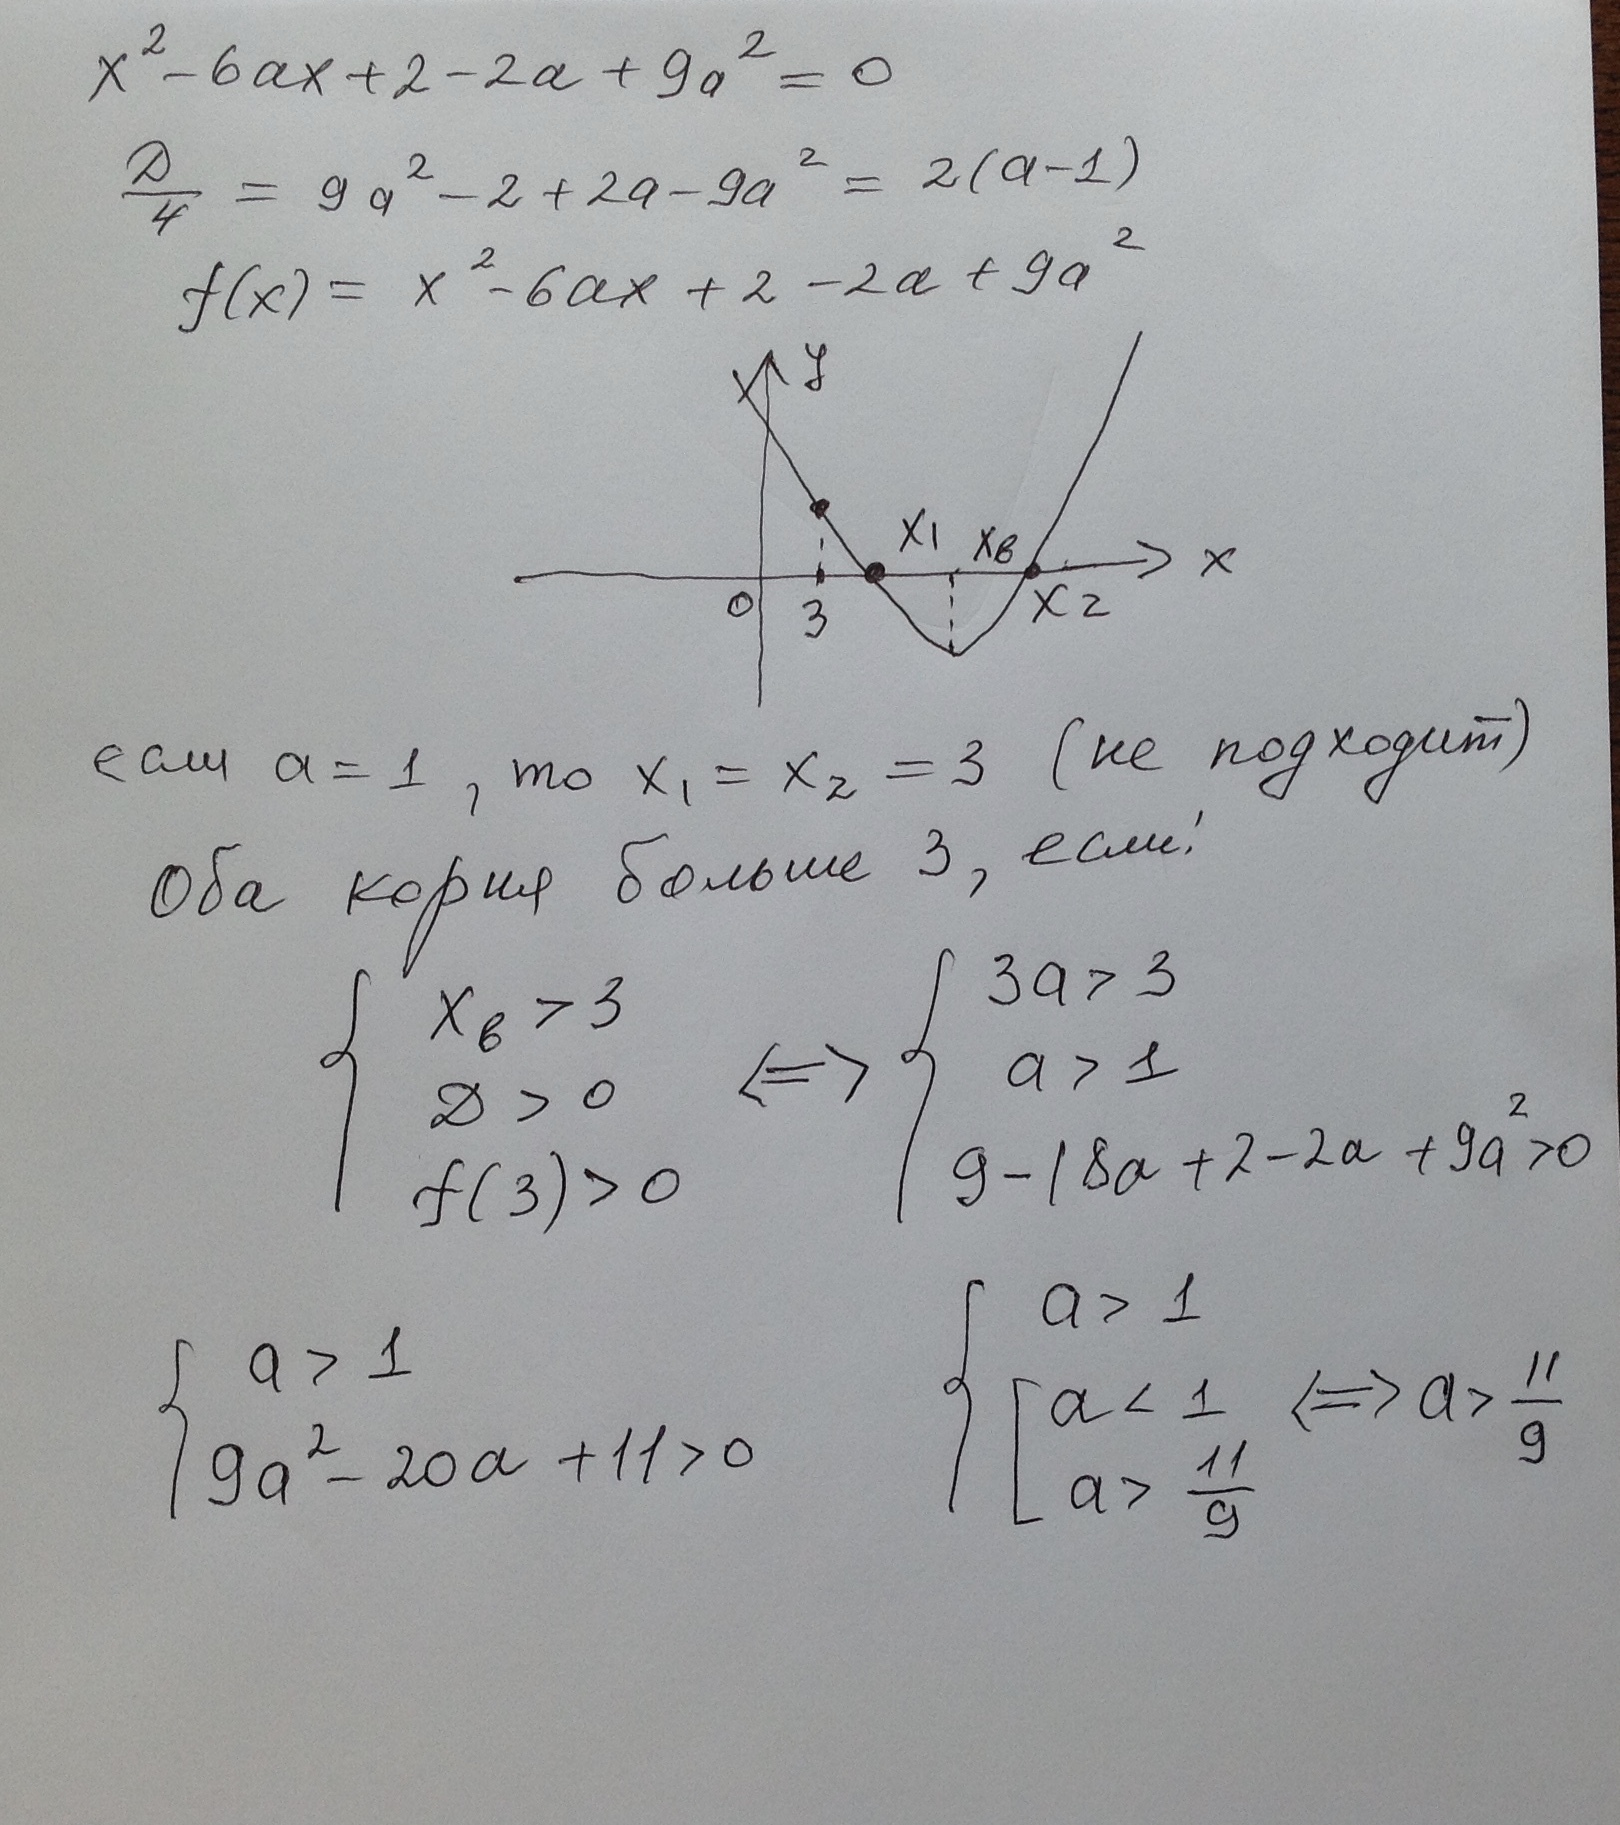 x² - 6ax + 2 - 2a + 9a² = 0
D/4 = 9a² - 2 + 2a - 9a² = 2(a-1)
f(x) = x² - 6ax + 2 - 2a + 9a²
y
x₁ xв x
0 3 x₂
если a = 1, то x₁ = x₂ = 3 (не подходит)
Оба корня больше 3, если:
{ xв > 3 <=> { 3a > 3
D > 0 a > 1
f(3) > 0 9 - 18a + 2 - 2a + 9a² > 0
{ a > 1
9a² - 20a + 11 > 0
{ a > 1
[ a < 1 <=> a > 11/9
a > 11/9